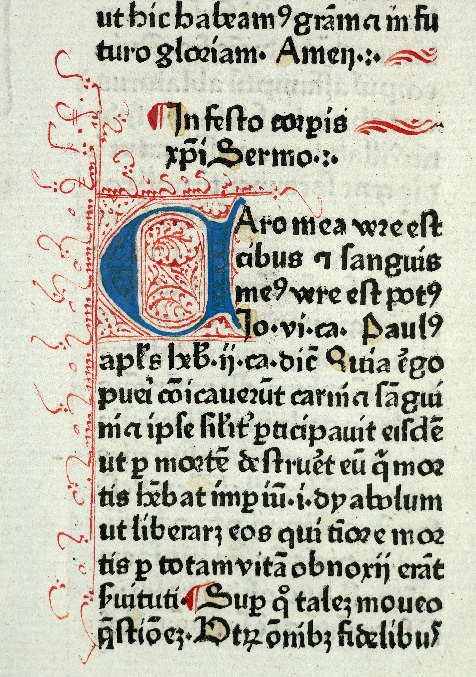 ut hic habeam⁹ grãm ⁊ in fu
turo gloriam. Amen .:.
¶ In festo corpis
xp̃i Sermo .:.
CAro mea vere est
cibus ⁊ sanguis
me⁹ vere est pot⁹
Jo. vi. ca. Paul⁹
apl̃s heb̃. ij. ca. dic̃ Quia ẽgo
puei cõicauerũt carni ⁊ sãgui
ni ⁊ ipse sil̃it̃ ꝑticipauit eisdẽ
ut ꝑ mortẽ destrueꝛ̃t eũ q̃ mor
tis hẽbat imꝑiũ .i. dyabolum
ut liberarꝫ eos qui tĩore mor
tis ꝑ totam vitã obnoxij erãt
ẜuituti. ¶ Suꝑ q̊ talẽ moueo
q̃stiõeꝫ. Vtꝝ õnibꝫ fidelibus